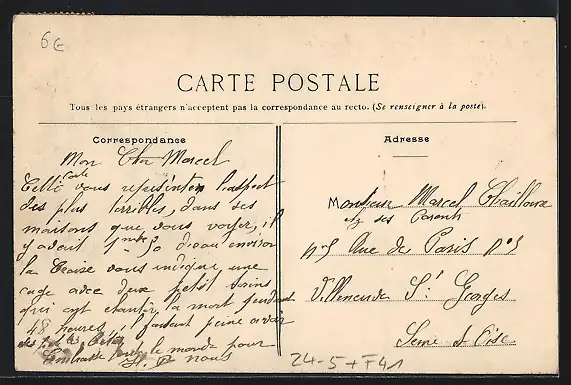 6€
CARTE POSTALE
Tous les pays étrangers n'acceptent pas la correspondance au recto. (Se renseigner à la poste).
Correspondance
Mon Cher Marcel
Cette carte vous représente l'aspect
des plus terribles, dans ses
maisons que vous voyez, il
y avait 1 mètre 50 d'eau environ
la Croix vous indique une
cage avec deux petit serins
qui ont chanter la mort pendant
48 heures, il faisaient peine a voir
ses petites bêtes
Embrasse tout le monde pour
nous
Adresse
Monsieur Marcel Chailloux
chez ses Parents
n° 5 Rue de Paris n° 5
Villeneuve St Georges
Seine & Oise
24-5+F41